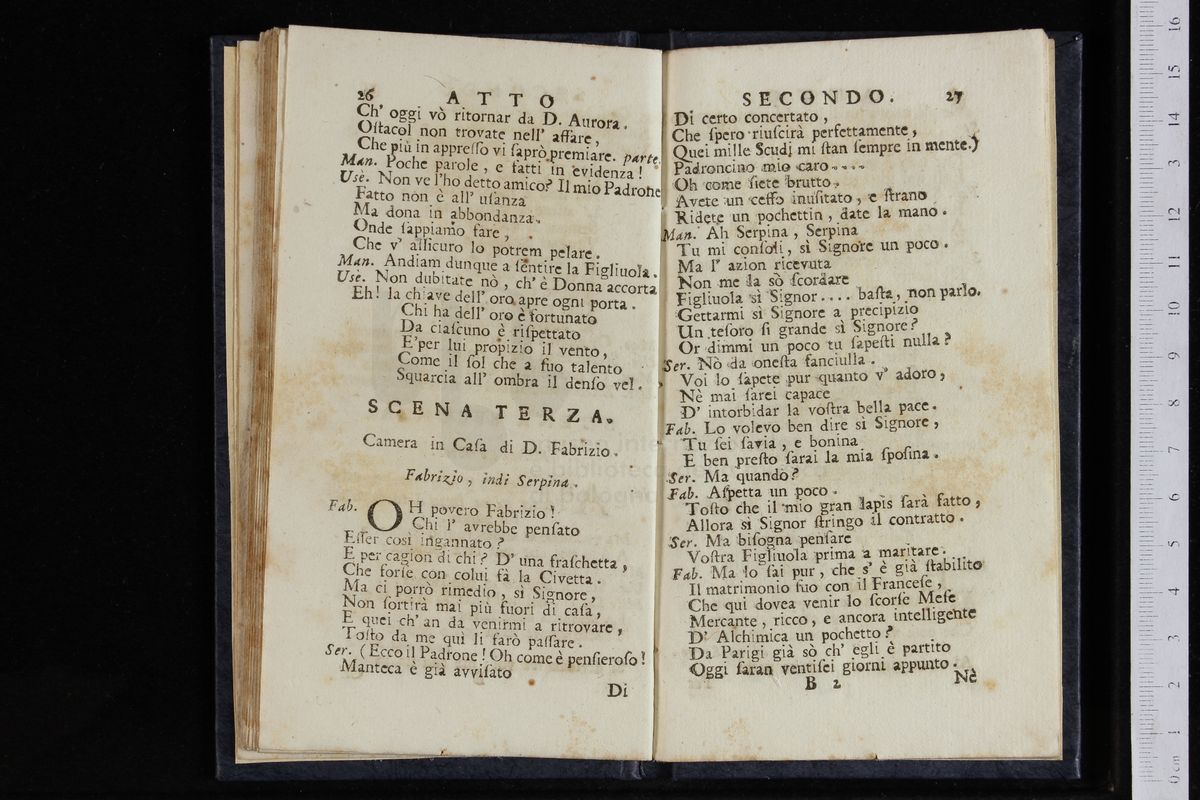 26 ATTO
Ch' oggi vò ritornar da D. Aurora.
Oſtacol non trovate nell' affare,
Che più in appreſſo vi ſaprò premiare. parte.
Man. Poche parole, e fatti in evidenza!
Use. Non ve l'ho detto amico? Il mio Padrone
Fatto non è all' uſanza
Ma dona in abbondanza.
Onde ſappiamo fare,
Che v' aſſicuro lo potrem pelare.
Man. Andiam dunque a ſentire la Figliuola.
Use. Non dubitate nò, ch' è Donna accorta
Eh! la chiave dell' oro apre ogni porta.
Chi ha dell' oro è fortunato
Da ciaſcuno è riſpettato
E'per lui propizio il vento,
Come il ſol che a ſuo talento
Squarcia all' ombra il denſo vel.
SCENA TERZA.
Camera in Caſa di D. Fabrizio.
Fabrizio, indi Serpina.
Fab. OH povero Fabrizio!
Chi l' avrebbe penſato
Eſſer così ingannato?
E per cagion di chi? D' una fraſchetta,
Che forſe con colui fà la Civetta.
Ma ci porrò rimedio, sì Signore,
Non ſortirà mai più fuori di caſa,
E quei ch' an da venirmi a ritrovare,
Toſto da me qui li farò paſſare.
Ser. (Ecco il Padrone! Oh come è penſieroſo!
Manteca è già avviſato
Di
SECONDO. 27
Di certo concertato,
Che ſpero riuſcirà perfettamente,
Quei mille Scudi mi ſtan ſempre in mente.)
Padroncino mio caro....
Oh come ſiete brutto,
Avete un ceffo inuſitato, e ſtrano
Ridete un pochettin, date la mano.
Man. Ah Serpina, Serpina
Tu mi conſoli, sì Signore un poco.
Ma l' azion ricevuta
Non me la sò ſcordare
Figliuola sì Signor.... baſta, non parlo.
Gettarmi sì Signore a precipizio
Un teſoro ſi grande sì Signore?
Or dimmi un poco tu ſapeſti nulla?
Ser. Nò da oneſta fanciulla.
Voi lo ſapete pur quanto v' adoro,
Nè mai ſarei capace
D' intorbidar la voſtra bella pace.
Fab. Lo volevo ben dire sì Signore,
Tu ſei ſavia, e bonina
E ben preſto ſarai la mia ſpoſina.
Ser. Ma quando?
Fab. Aſpetta un poco.
Toſto che il mio gran lapis ſarà fatto,
Allora sì Signor ſtringo il contratto.
Ser. Ma biſogna penſare
Voſtra Figliuola prima a maritare.
Fab. Ma lo ſai pur, che s' è già ſtabilito
Il matrimonio ſuo con il Franceſe,
Che qui dovea venir lo ſcorſe Meſe
Mercante, ricco, e ancora intelligente
D' Alchimica un pochetto?
Da Parigi già sò ch' egli è partito
Oggi ſaran ventiſei giorni appunto.
B 2 Nè
0cm 1 2 3 4 5 6 7 8 9 10 11 12 13 14 15 16